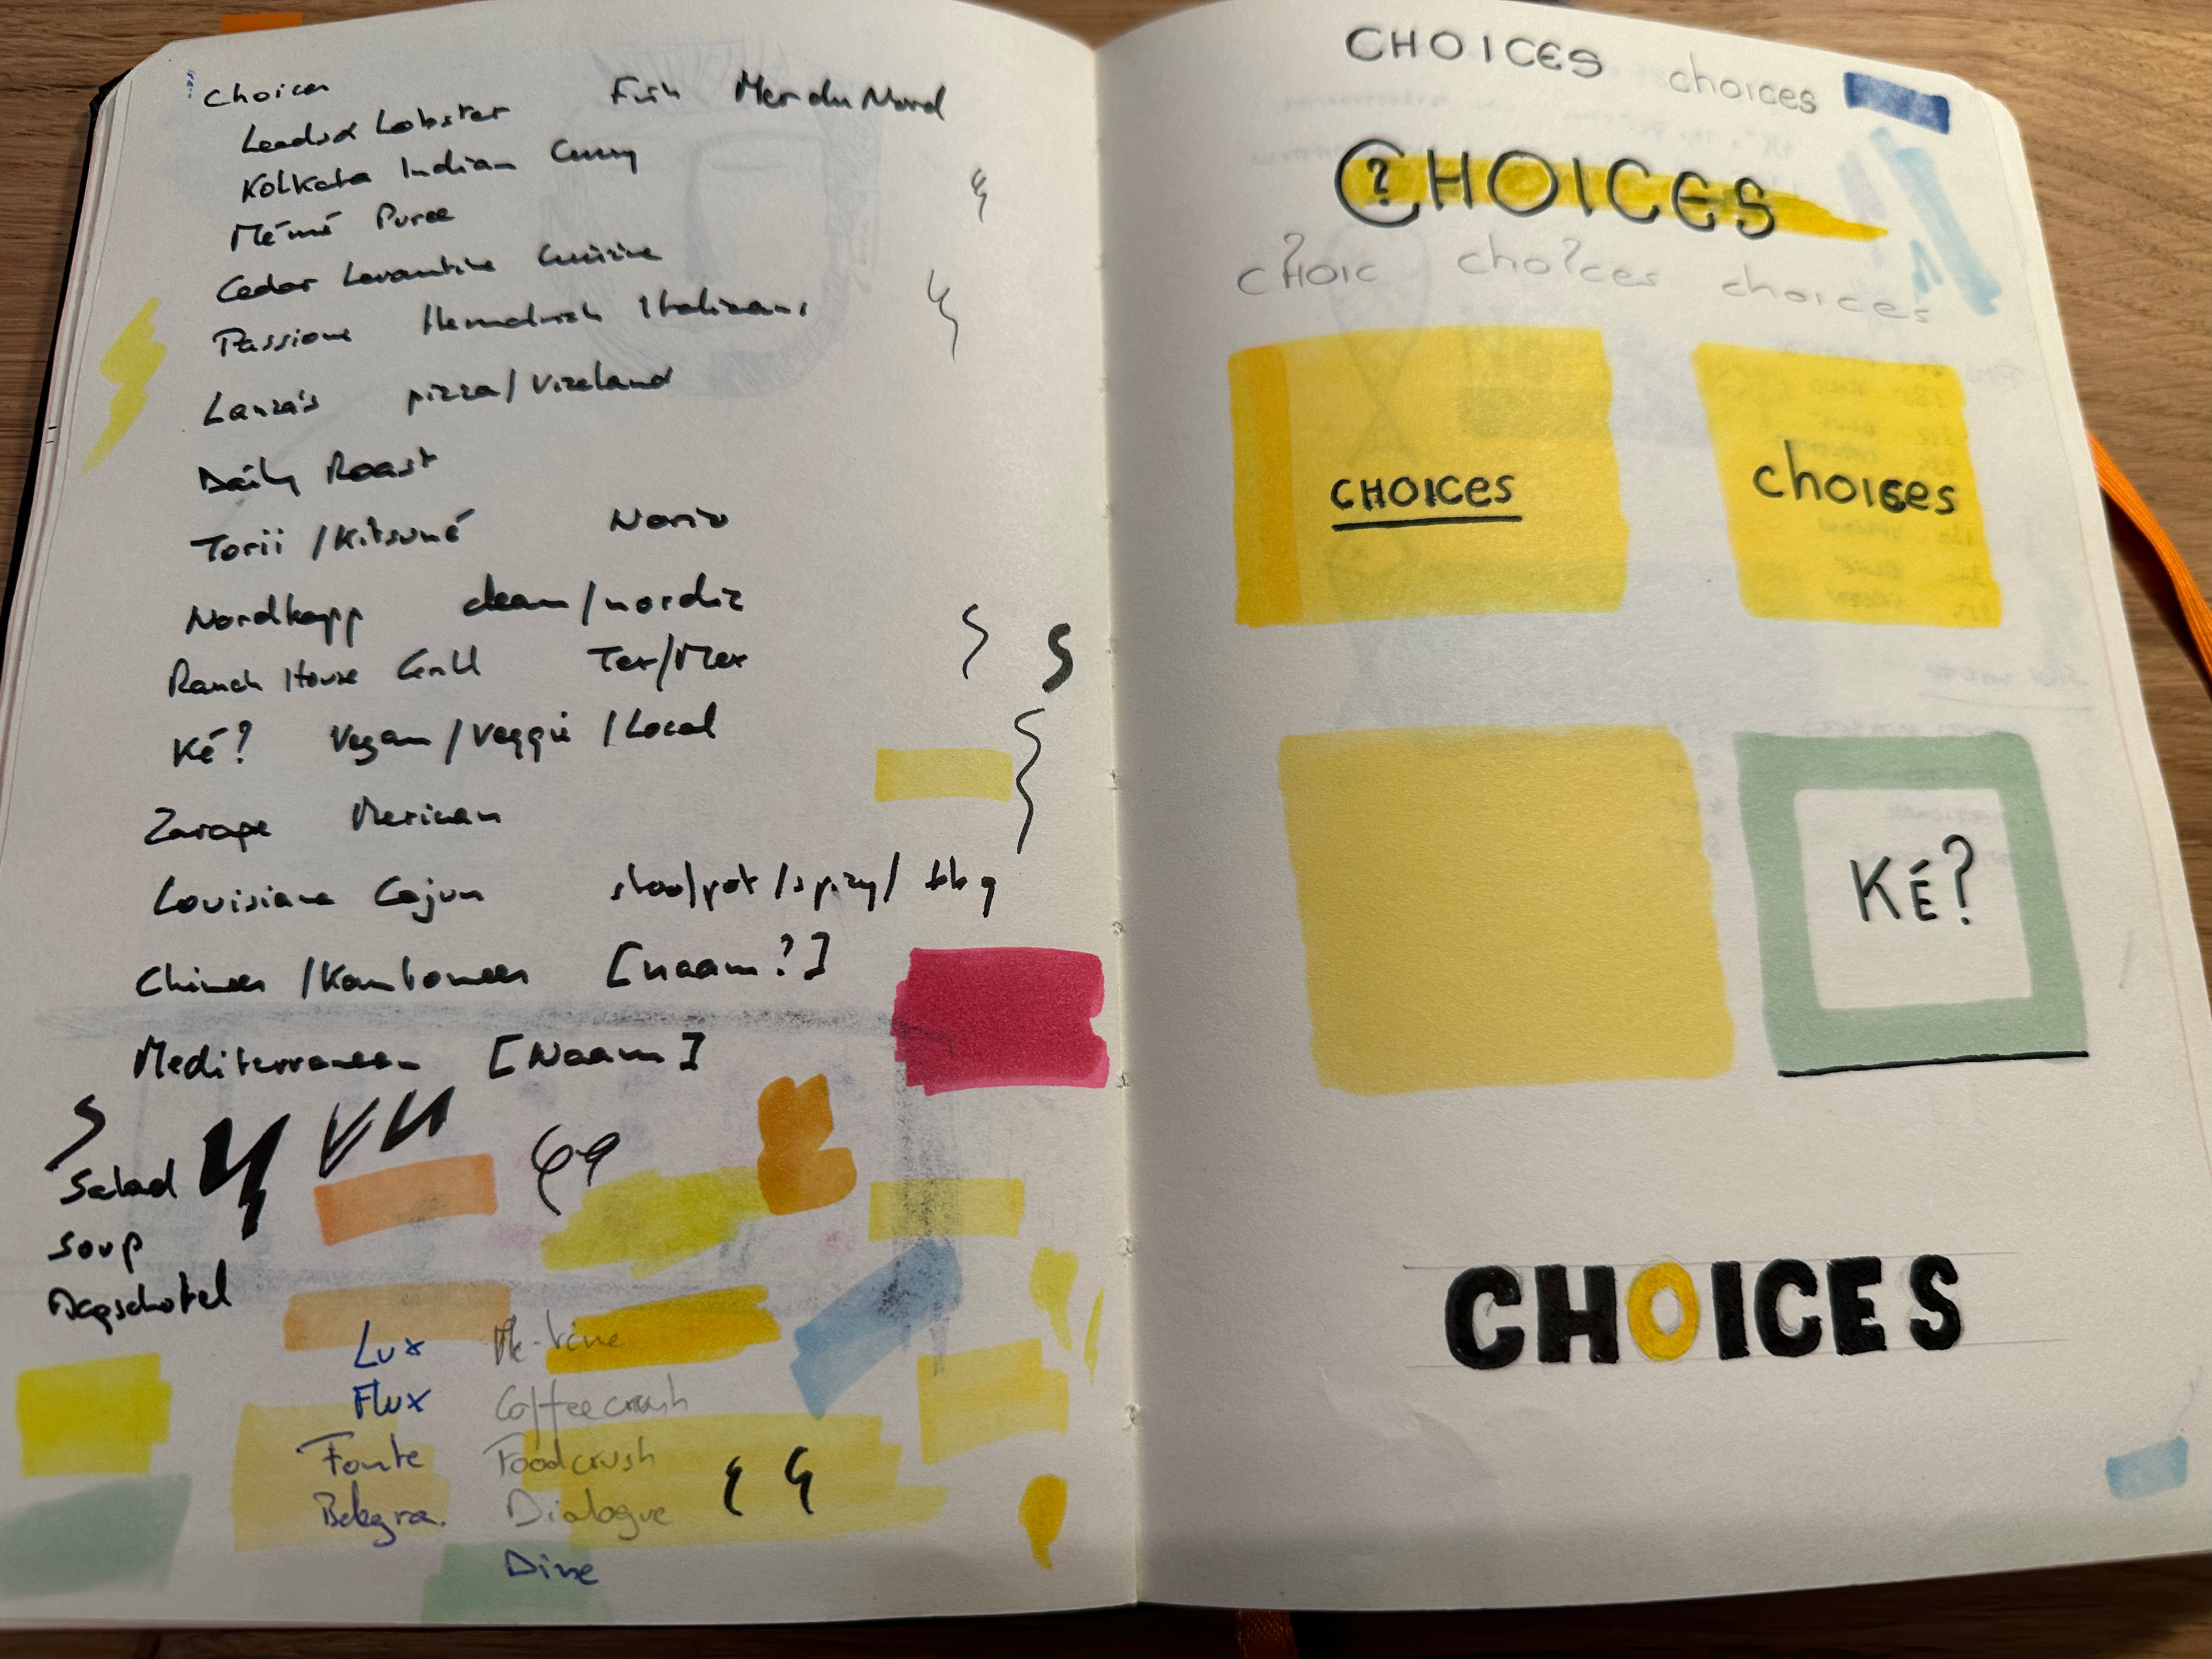 Choices
Lobster Fish Mer du Nord
Kolkata Indian Curry
Mémé Puree
Cedar Levantine Cuisine
Passione
Lanza's pizza/
Daily Roast
Torii / Kitsuné
Nordkapp clean/nordic
Ranch House Grill Tex/Mex
Ké? Vegan/Veggie/Local
Zarape Mexican
Louisiana Cajun
Chinees /Kantonees [naam?]
Mediterranean [Naam]
Salad
Soup
Dagschotel
Lux
Flux Coffeecrush
Fonte Foodcrush
Dialogue
Dine
CHOICES choices
?
CHOICES
CHOIC cho?ces choices
CHOICES choices
KÉ?
CHOICES